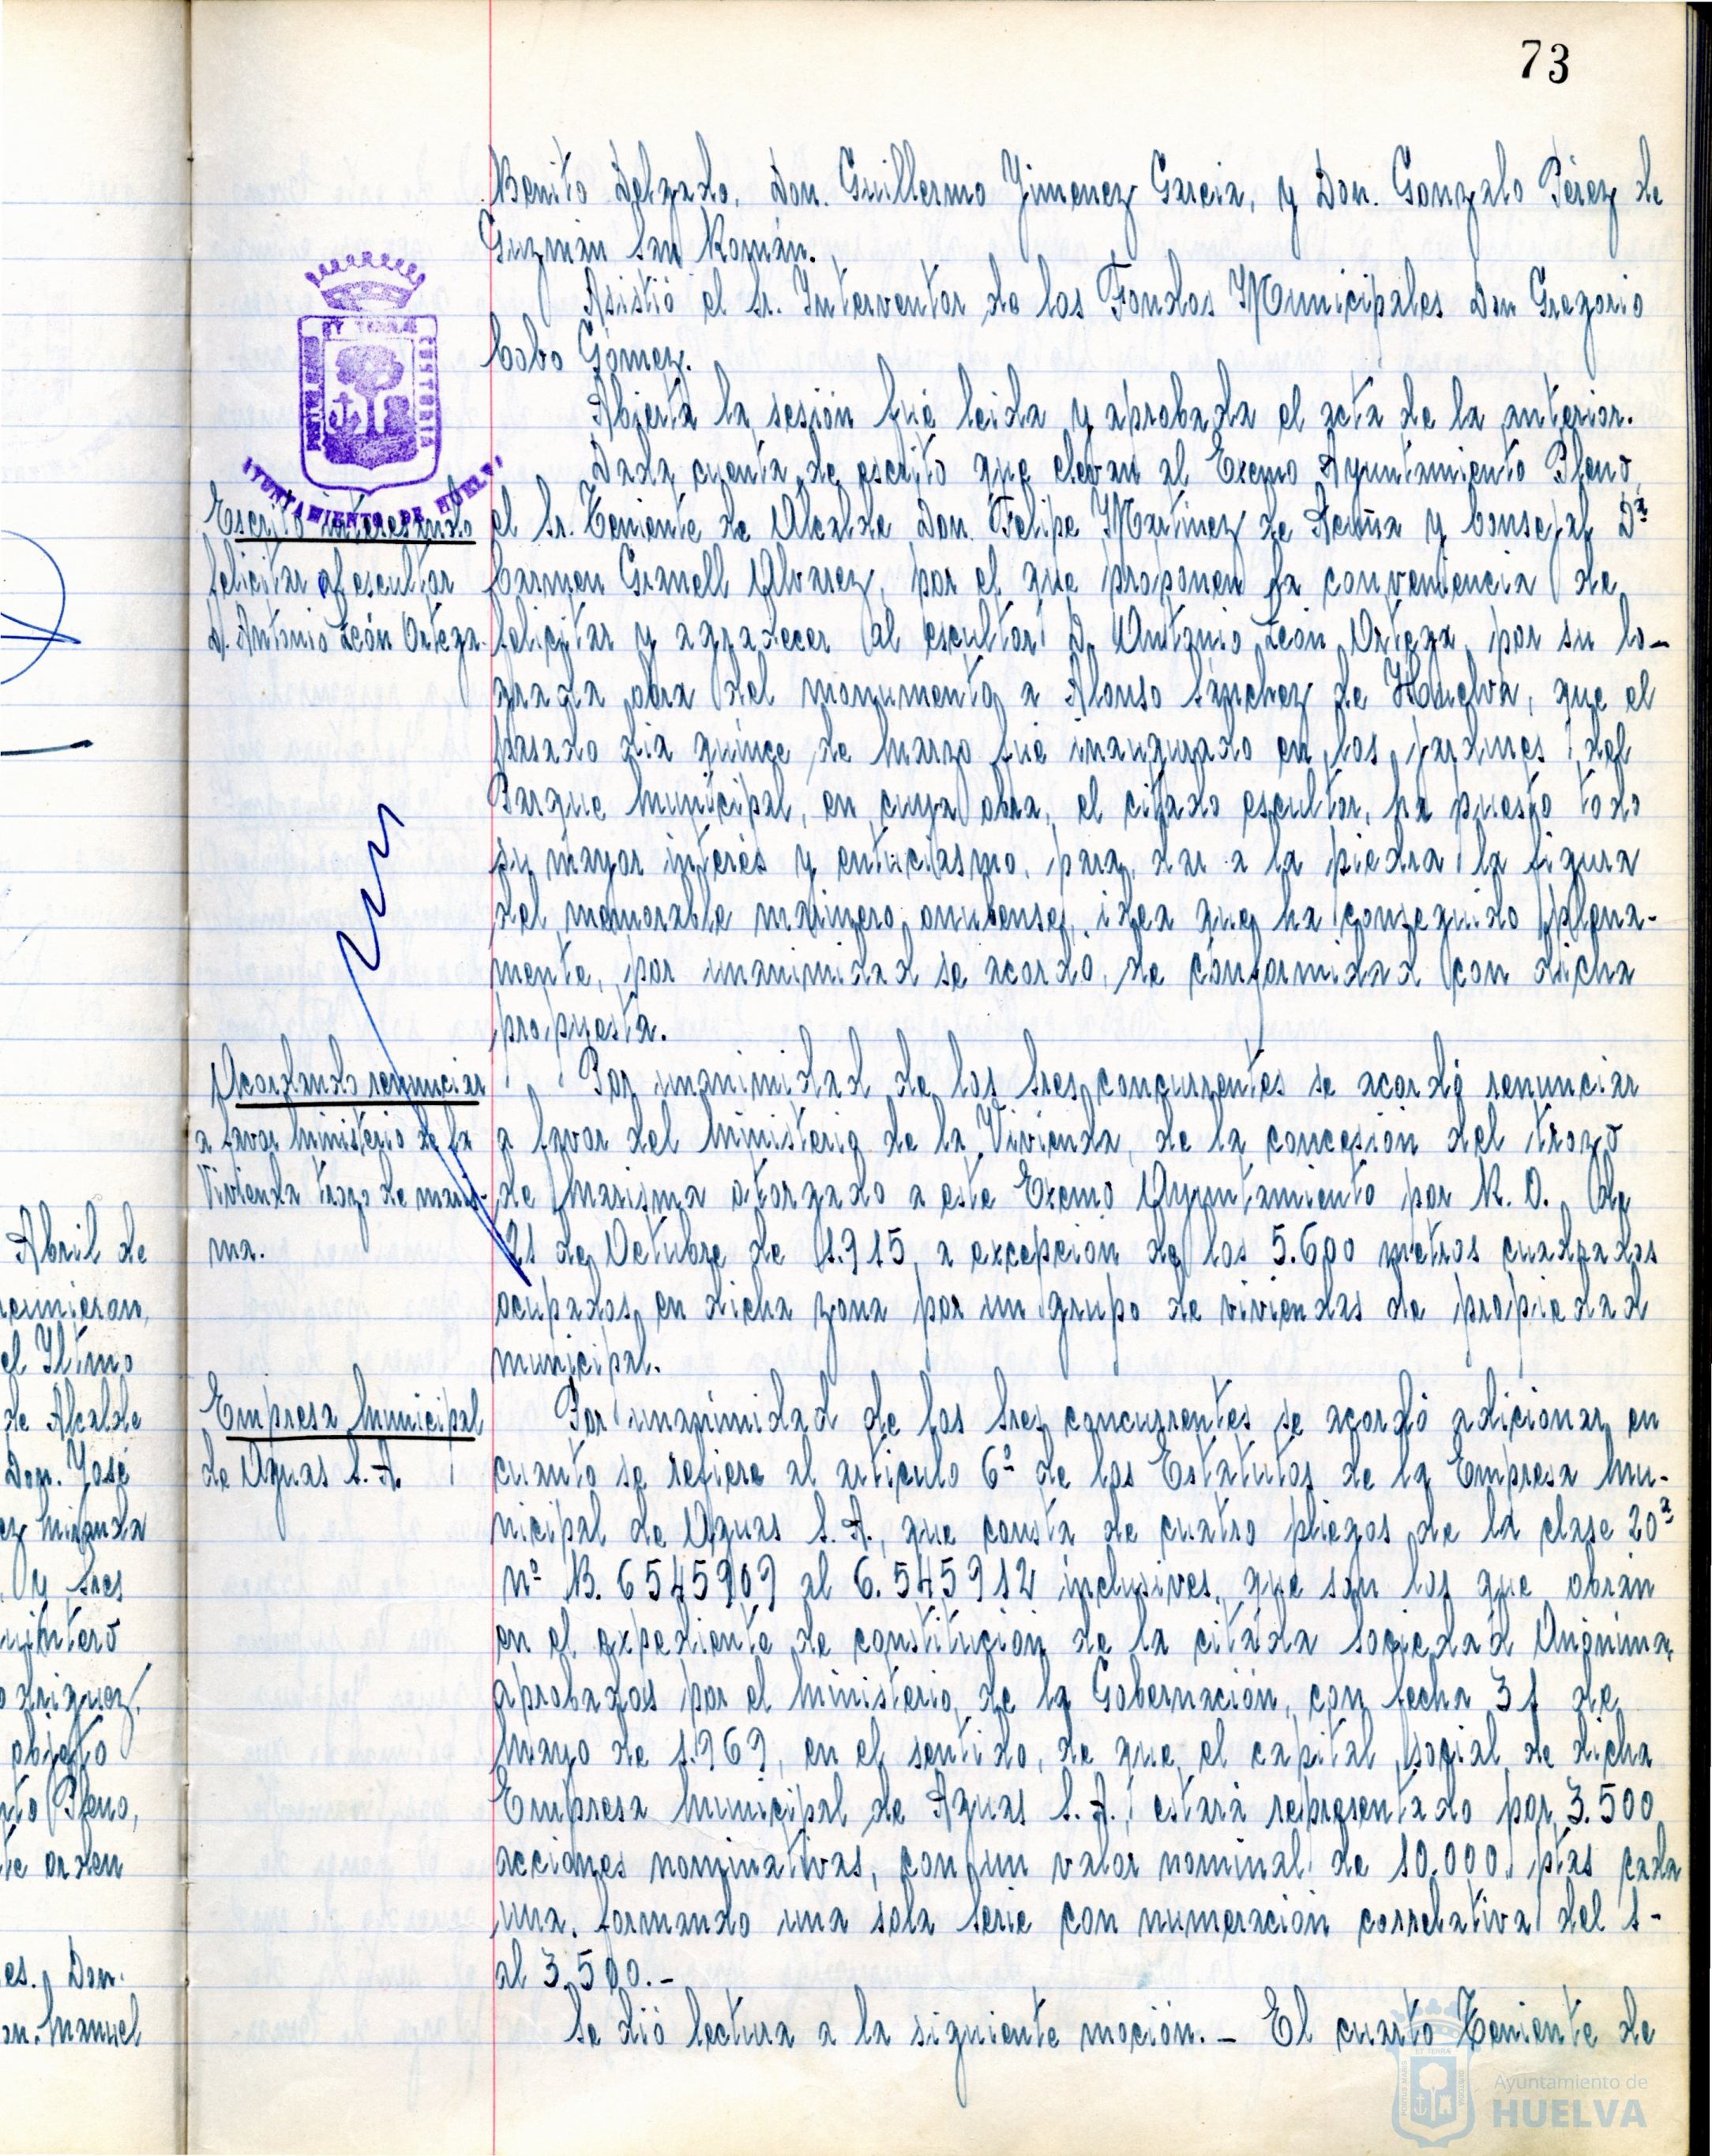 73
Benito Delgado, Don. Guillermo Jimenez Garcia, y Don. Gonzalo Pérez de
Guzmán San Román.
Asistió el Sr. Interventor de los Fondos Municipales Don Gregorio
Cobo Gómez.
Abierta la sesión fué leida y aprobada el acta de la anterior.
Dada cuenta de escrito que elevan al Excmo Ayuntamiento Pleno,
el Sr. Teniente de Alcalde Don. Felipe Martinez de Acuña y Consejal Dª
Carmen Granell Alvarez, por el que proponen la conveniencia de
felicitar y agradecer al escultor D. Antonio León Ortega, por su lo-
grada obra del monumento a Alonso Sánchez de Huelva, que el
pasado dia quince de Marzo fué inaugurado en los jardines del
Parque Municipal, en cuya obra, el citado escultor, ha puesto todo
su mayor interés y entuciasmo, para dar a la piedra la figura
del memorable marinero onubense, idea que ha conseguido plena-
mente, por unanimidad se acordó, de conformidad con dicha
propuesta.
Por unanimidad de los Sres concurrentes se acordó renunciar
a favor del Ministerio de la Vivienda, de la concesión del trozo
de Marisma otorgado a este Excmo Ayuntamiento por R. O. de
21 de Octubre de 1.915, a excepción de los 5.600 metros cuadrados
ocupados en dicha zona por un grupo de viviendas de propiedad
municipal.
Por unanimidad de los Sres concurrentes se acordó adicionar en
cuanto se refiere al articulo 6º de los Estatutos de la Empresa Mu-
nicipal de Aguas S. A., que consta de cuatro pliegos de la clase 20ª
nº B. 6545909 al 6.545912 inclusives, que son los que obran
en el expediente de constitución de la citada Sociedad Anónima,
aprobados por el Ministerio de la Gobernación, con fecha 31 de
Mayo de 1.969, en el sentido, de que el capital social de dicha
Empresa Municipal de Aguas S. A., estará representado por 3.500
acciones nominativas, con un valor nominal de 10.000 ptas cada
una, formando una sola serie con numeración correlativa del 1-
al 3.500.-
Se dió lectura a la siguiente moción.- El cuarto Teniente de
ET TERRÆ
PORTUS MARIS
CUSTODIA
AYUNTAMIENTO DE HUELVA
Escrito interesando
felicitar al escultor
D. Antonio León Ortega.
Acordando renunciar
a favor Ministerio de la
Vivienda trozo de maris-
ma.
Empresa Municipal
de Aguas S. A.
Abril de
reunieron,
el Iltmo
de Alcalde
Don. José
ez Miranda
y Sres
uintero
odriguez,
objeto
nto Pleno,
te orden
es. Don.
on. Manuel
Ayuntamiento de
HUELVA